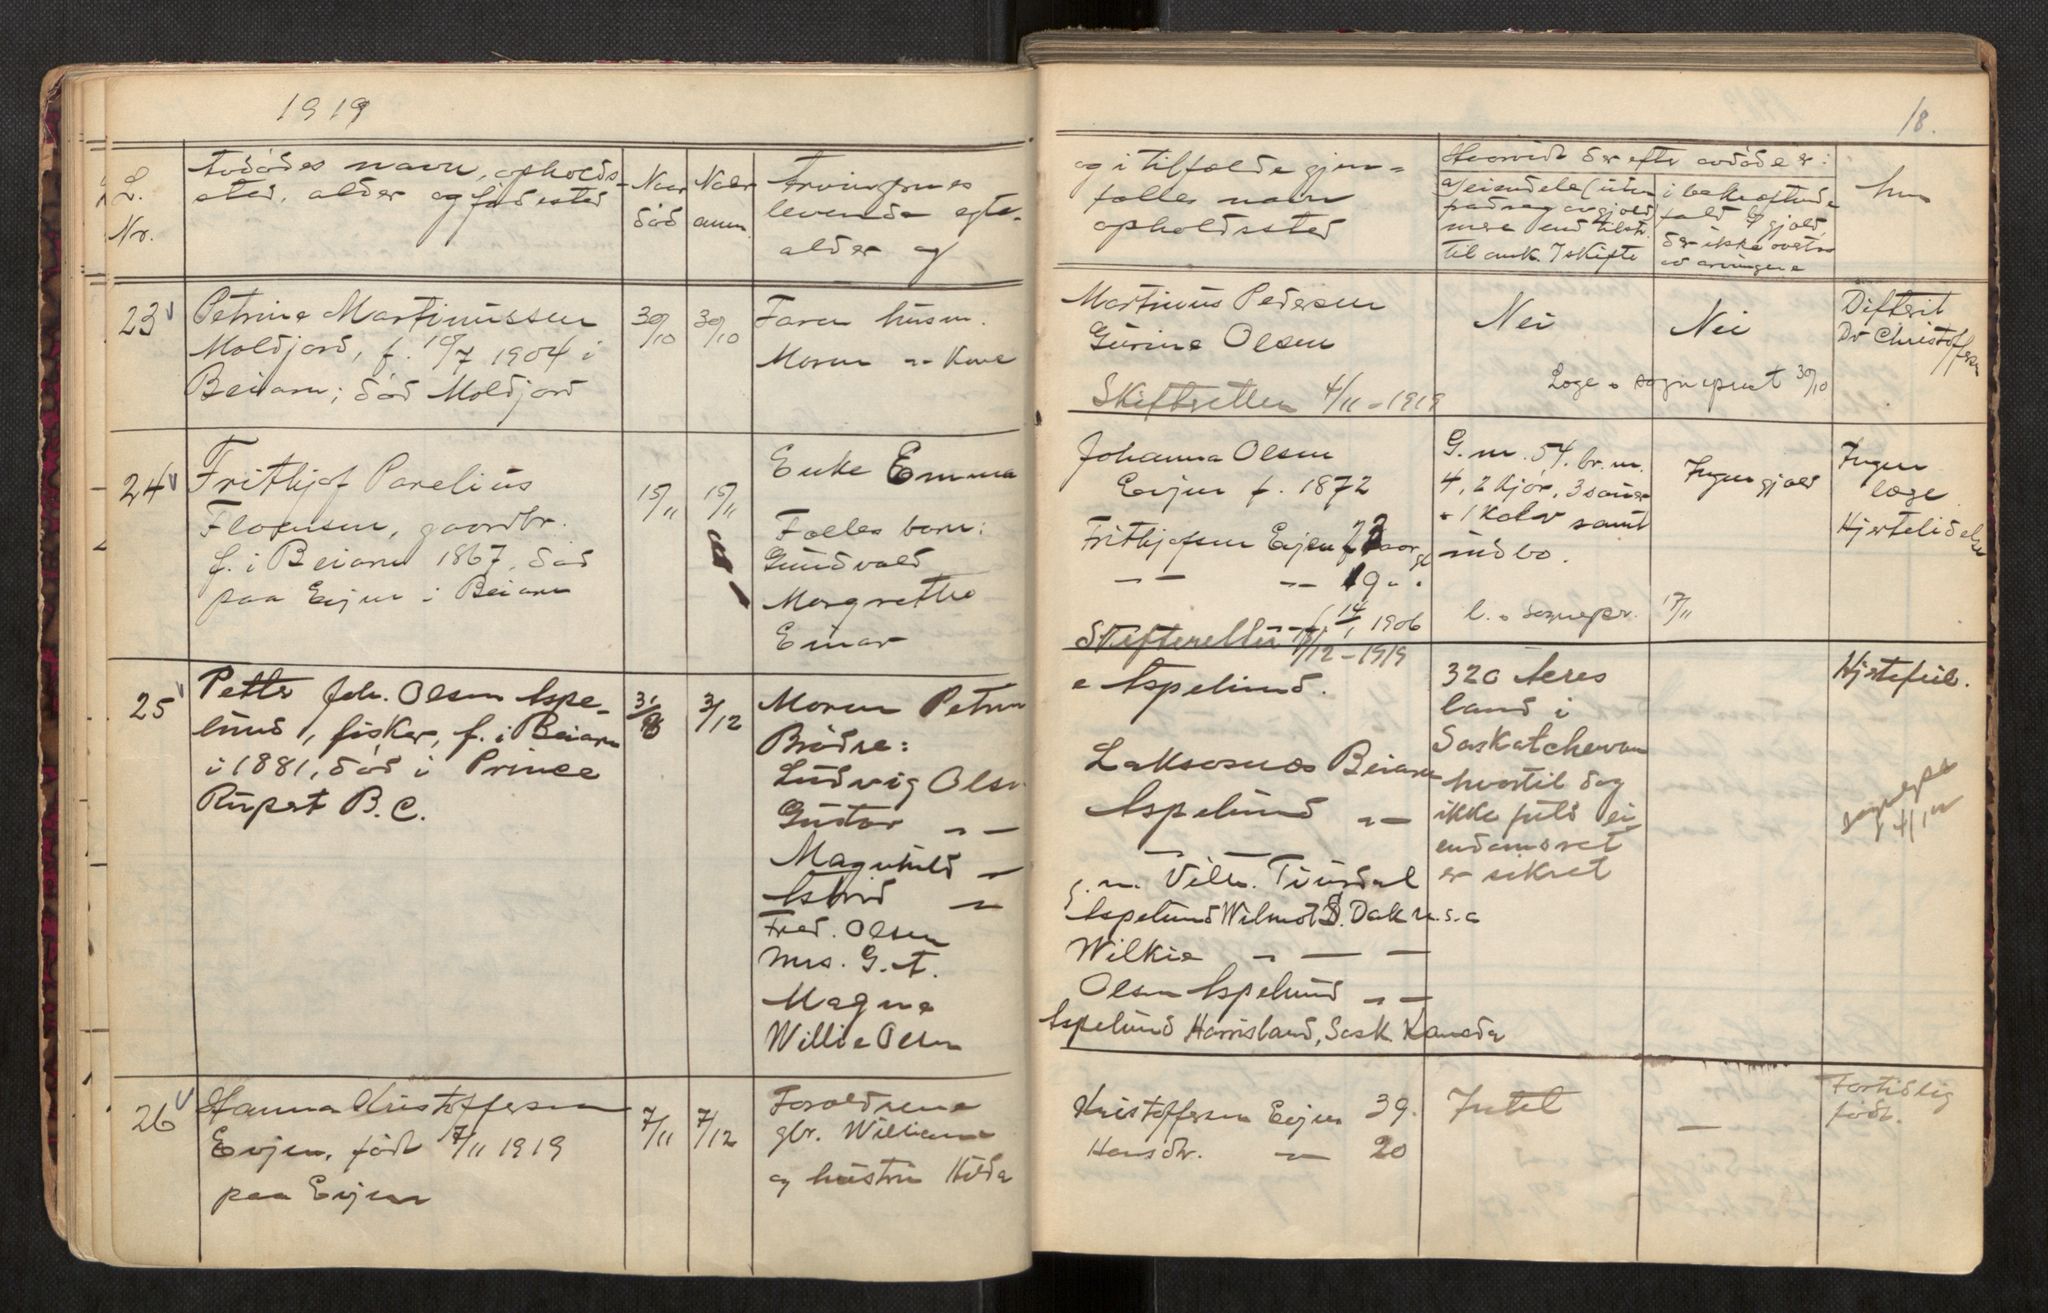 1919
18.
L.
Nr.
Avdødes navn, opholds-
sted, alder og fødested
Naar
død
Naar
anm.
Arvingernes
levende egte-
alder og
og i tilfælde gjen-
navn
opholdssted
Hvorvidt der efter avdøde er:
a) eiendele (uten
fradrag av gjæld)
mere end tilstr.
til ank. 7 skifte
i bekræftende
fald b) gjæld,
der ikke overtas
av arvingene
23
Petrine Martinussen
Moldjord, f. 10/7 1904 i
Beiarn; død Moldjord
30/10
30/10
Faren husm.
Moren -"- Kone
Martinus Pedersen
Gurine Olsen
Skifteretten 4/11-1919
Nei
Nei
30/10
Difterit
Dr Christoffersen
24
Frithjof Parelius
gaardbr.
f. i Beiarn 1867, død
paa Evjen i Beiarn
15/11
15/11
Enke Emma
Fælles barn:
Gundvald
Margrethe
Einar
Johanna Olsen
Evjen f. 1872
Frithjofsen Evjen
-"- -"- 19
14/1 1906
Skifteretten 17/12-1919
G. nr. 54. br. nr.
4, 2 kjør, 3 sauer
1 kalv samt
indbo.
l. sognepr. 17/11
Ingen gjæld
Ingen
læge
Hjertelidelse
25
Petter Joh. Olsen Aspe-
lund, fisker, f. i Beiarn
i 1881, død i Prince
Rupert B.C.
3/12
Moren Petrin
Brødre:
Ludvig Olsen
Gustav -"-
Magnhild -"-
Astrid -"-
Fred. Olsen
Mrs. G. A.
Magna
Willie Olsen
e Aspelund.
Laksosnes Beiarn
Aspelund -"-
g. m. Vilh. Tuvdal
Aspelund Wilmot S. Dak u.s.a
Wilkie -"- -"-
Olsen Aspelund -"-
Aspelund Harrisland, Sask. Kanada
320 Acres
land i
Saskatchevan
hvortil dog
ikke fuld ei-
endomsret
er sikret
Hjertefeil.
26
Hanna Kristoffersen
Evjen, født 7/11 1919
paa Evjen
7/11
7/12
Forældrene
gbr. William
og hustru Hilda
Kristoffersen Evjen 39.
Hansdtr. -"- 20
Intet
—
Fortidlig
født.